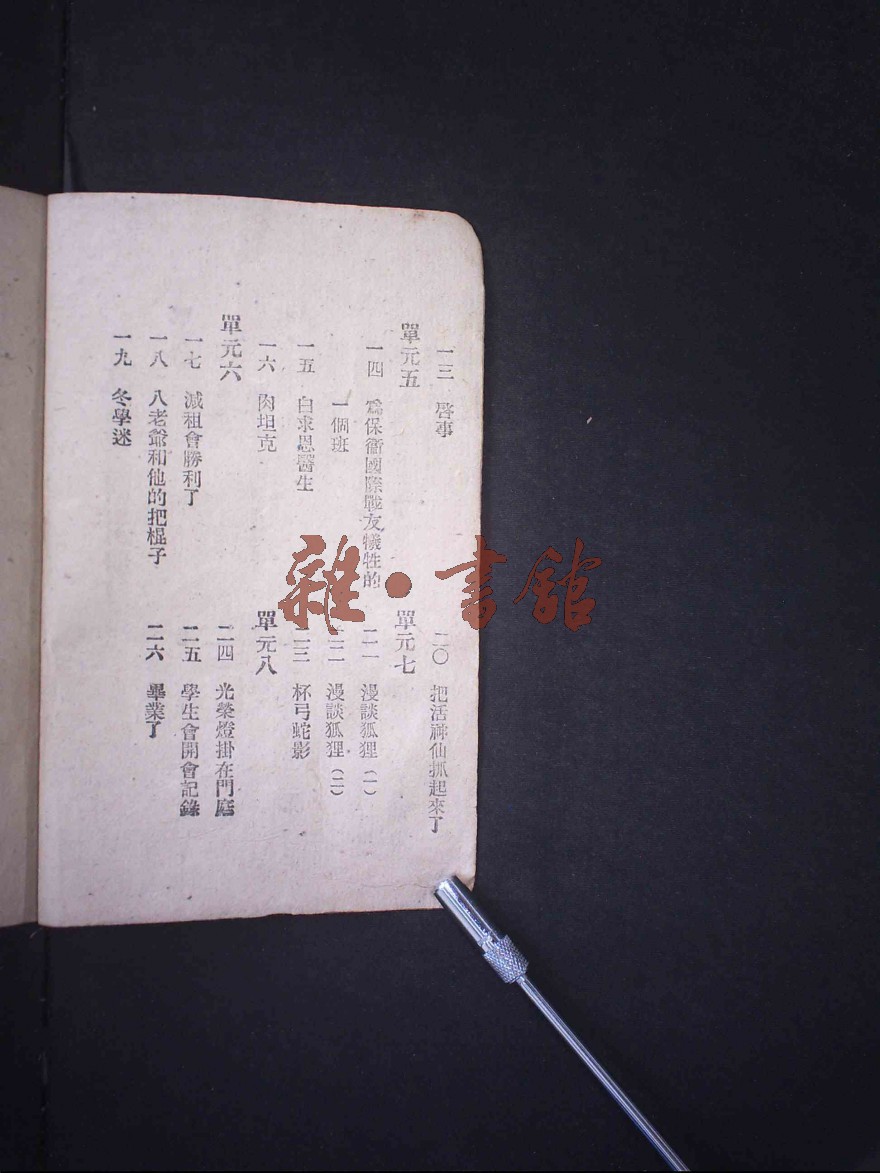 一三　啓事
單元五
一四　爲保衞國際戰友犧牲的
一個班
一五　白求恩醫生
一六　肉坦克
單元六
一七　減租會勝利了
一八　八老爺和他的把棍子
一九　冬學迷
二〇　把活神仙抓起來了
單元七
二一　漫談狐狸（一）
二二　漫談狐狸（二）
二三　杯弓蛇影
單元八
二四　光榮燈掛在門庭
二五　學生會開會記錄
二六　畢業了
雜·書館